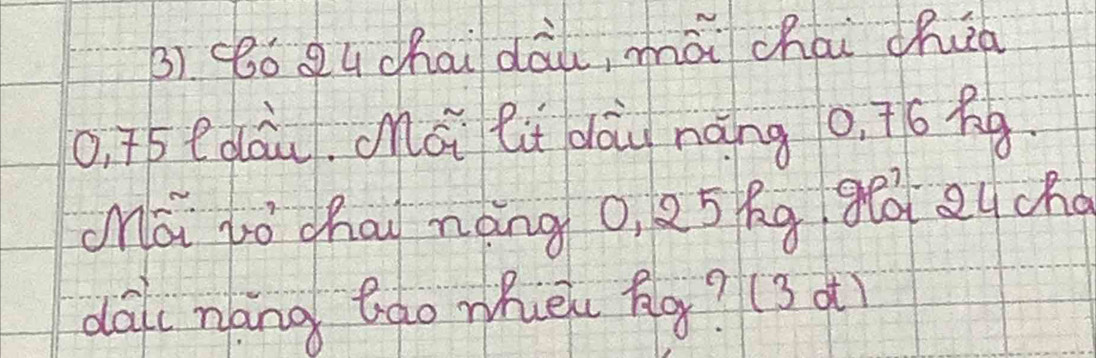 3). Có 24 chai dầu, mỗi chai chứa
0,75 l dầu. Mỗi lít dầu nặng 0,76 kg.
Mỗi vỏ chai nặng 0,25 kg. Hỏi 24 cha
dầu nặng bao nhiêu kg? (3 đ)